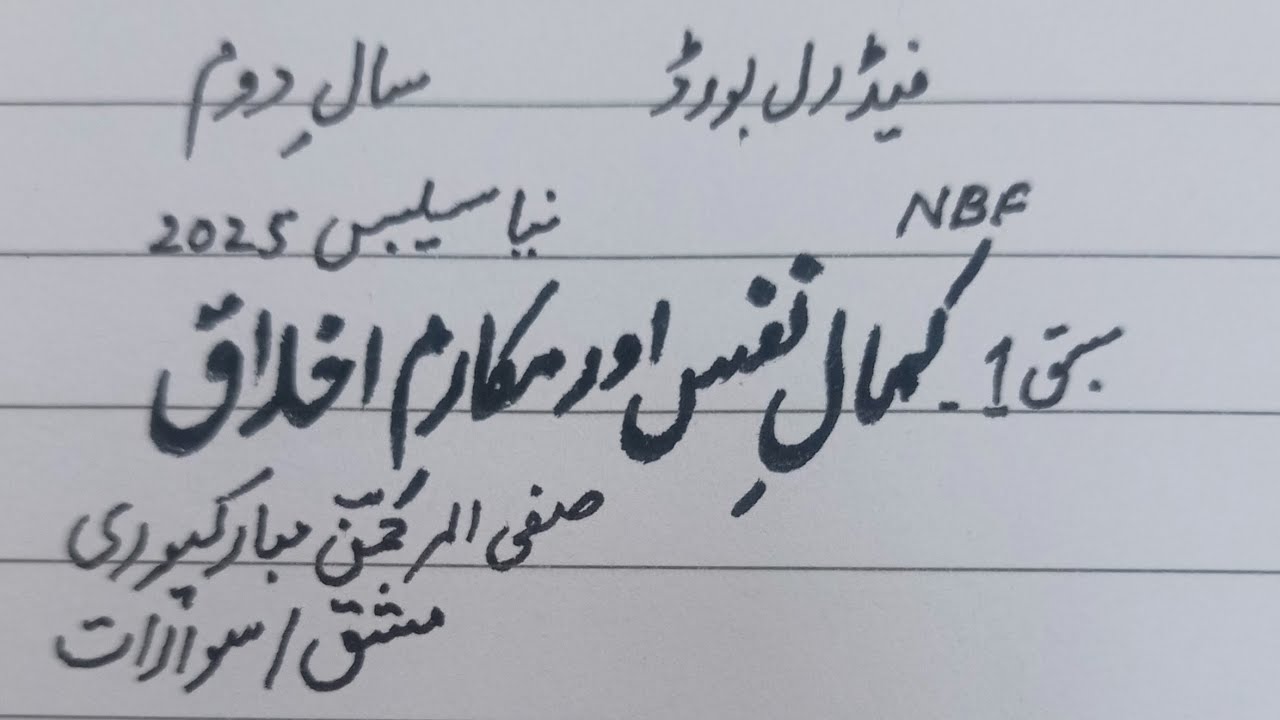 فیڈرل بورڈ سالِ دوم
NBF نیا سیلیبس 2025
سبق 1. کمالِ نفس اور مکارم اخلاق
صفی الرحمٰن مبارکپوری
مشق / سوالات